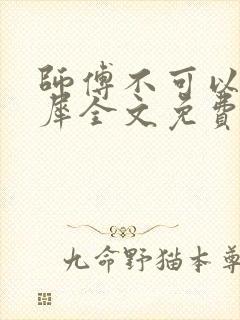 師傅不可以
犀全文免費
九命野猫本尊